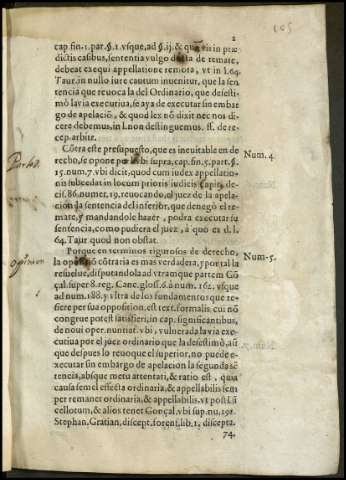 2
cap. fin. 1. par. §. 1. vsque, ad §. ij. & in præ
dictis casibus, sententia vulgo dicta de remate,
debeat exequi appellatione remota, vt in l. 64.
Taur. in nullo iure cautum inuenitur, que la sen
tencia que reuoca la del Ordinario, que desesti-
mò la via executiua, se aya de executar sin embar
go de apelaciõ, & quod lex nõ dixit nec nos di-
cere debemus, in l. non destinguemus. ff. de re-
cep. arbitr.
Cõtra este presupuesto, que es ineuitable en de
recho, se opone por vbi supra, cap. fin. 5. part. §.
15. num. 7. vbi dicit, quod cum iudex appellatio-
nis succedat in locum prioris iudicis
cis. 86. numer. 19. reuocando, el juez de la apela-
cion la sentencia del inferior, que denegò el re-
mate, y mandandole hazer, podra executar su
sentencia, como pudiera el juez, à quo ex d. l.
64. Taur. quod non obstat.
Porque en terminos rigurosos de derecho,
la opiniõ cõtraria es mas verdadera, y portal la
resuelue, disputandola ad vtramque partem Gõ
çal. super 8. reg. Canc. gloss. 6. à num. 162. vsque
ad num. 188. y vltra de los fundamentos que re-
fiere por su apposition. est text. formalis, cui nõ
congrue potest satisfieri, in cap. significantibus,
de noui oper. nuntiat. vbi, vulnerada la via exe-
cutiua por el juez ordinario que la desestimò, aũ
que despues lo reuoque el superior, no puede e-
xecutar sin embargo de apelacion la segunda sẽ
tencia, absque metu attentati, & ratio est, quia
causa semel effecta ordinaria, & appellabilis sem
per remanet ordinaria, & appellabilis. vt post
cellotum, & alios tenet Gonçal. vbi sup. nu. 191.
Stephan. Gratian. discept. forens. lib. 1. discepta.
74.
Num. 4.
Num. 5.